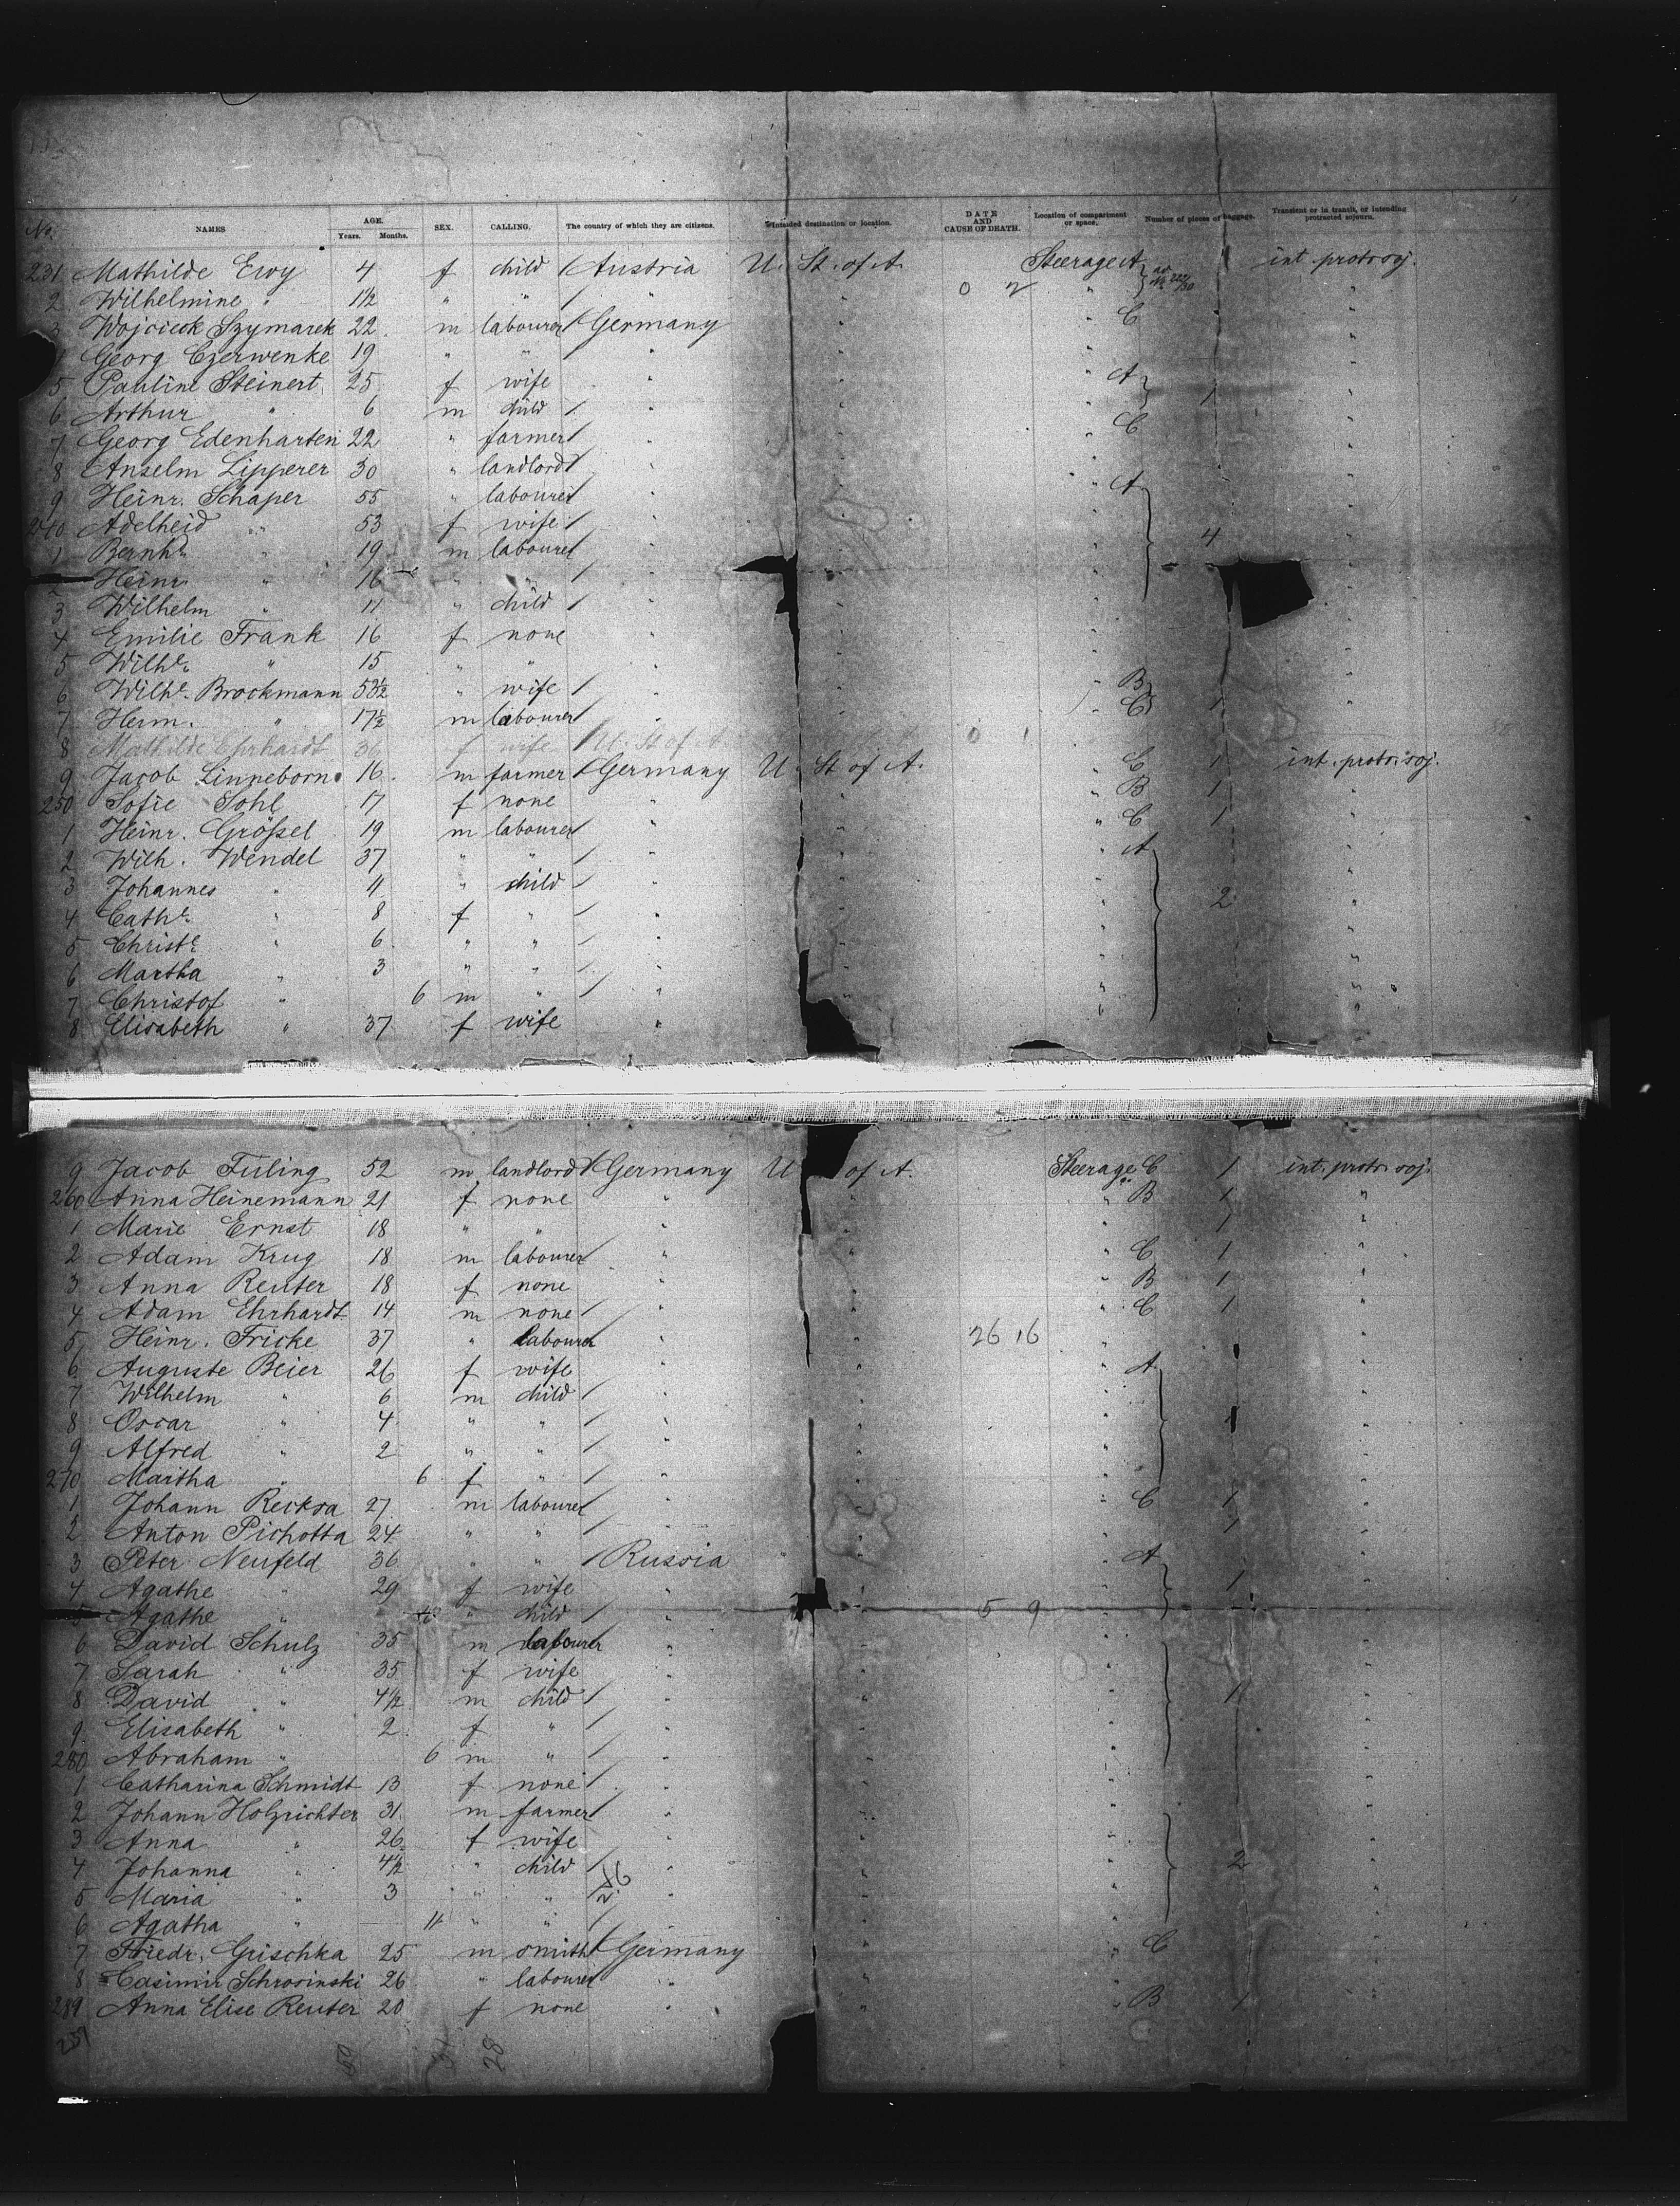 No. NAMES AGE. Years. Months. SEX. CALLING. The country of which they are citizens. Intended destination or location. DATE AND CAUSE OF DEATH. Location of compartment or space. Number of pieces of baggage. Transient or in transit, or intending protracted sojourn.
231 Mathilde Ewy 4 f child / Austria U. St. of A. Steerage A int. protr. soj.
2 Wilhelmine " 1½ " " / " 0 2 " "
3 Wojcieck Szymarek 22 m labourer / Germany " C "
Georg Czerwenke 19 " " / " " "
5 Pauline Steinert 25 f wife " " A "
6 Arthur " 6 m child / " " 1 "
7 Georg Edenharten 22 " farmer / " " C "
8 Anselm Lipperer 30 " landlord / " " "
9 Heinr. Schaper 55 " labourer / " " A "
240 Adelheid " 53 f wife / " " "
1 Bernhd. " 19 m labourer " " 4 "
Heinr. " 16 " " / " " "
3 Wilhelm " 11 " child / " " "
4 Emilie Frank 16 f none " " "
5 Wilhe. " 15 " " " " "
6 Wilhe. Brockmann 53½ " wife / " " B "
7 Herm. " 17½ m labourer / " " C 1 "
8 Mathilde Ehrhardt 36 f wife / U. St of A. 0 1
9 Jacob Linneborn 16 m farmer / Germany U. St of A. " C 1 int. protr. soj.
250 Sofie Sohl 17 f none " " B 1 "
1 Heinr. Größel 19 m labourer / " " C 1 "
2 Wilh. Wendel 37 " " / " " A "
3 Johannes " 11 " child / " " 2 "
4 Cathe. " 8 f " / " " "
5 Christe. " 6 " " / " " "
6 Martha " 3 " " / " " "
7 Christof " 6 m " / " " "
8 Elisabeth " 37 f wife " " "
9 Jacob Füling 52 m landlord / Germany U of A. Steerage C 1 int. protr. soj.
260 Anna Heinemann 21 f none " " B 1 "
1 Marie Ernst 18 " " " " 1 "
2 Adam Krug 18 m labourer / " " C 1 "
3 Anna Reuter 18 f none " " B 1 "
4 Adam Ehrhardt 14 m none / " " C 1 "
5 Heinr. Fricke 37 " labourer " 26 16 " "
6 Auguste Beier 26 f wife " " A "
7 Wilhelm " 6 m child / " " "
8 Oscar " 4 " " / " " 1 "
9 Alfred " 2 " " / " " "
270 Martha " 6 f " / " " "
1 Johann Recksa 27 m labourer / " " C 1 "
2 Anton Pichotta 24 " " / " " 1 "
3 Peter Neufeld 36 " " / Russia " A "
4 Agathe " 29 f wife " " 1 "
5 Agathe " " child / " 5 9 " "
6 David Schulz 35 m labourer " " "
7 Sarah " 35 f wife " " "
8 David " 4½ m child / " " 1 "
9 Elisabeth " 2 f " / " " "
280 Abraham " 6 m " / " " "
1 Catharina Schmidt 13 f none / " " "
2 Johann Holzrichter 31 m farmer / " " "
3 Anna " 26 f wife " " "
4 Johanna " 4½ " child / " " 2 "
5 Maria " 3 " " / " " "
6 Agatha " 11 " " / " "
7 Friedr. Grischka 25 m smith / Germany " C "
8 Casimir Schrosinski 26 " labourer / " " "
289 Anna Elise Reuter 20 f none " " B 1 "
28